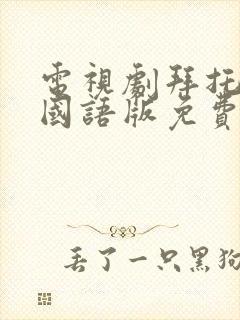 電視劇拜托
國語版免費
丟了一只黑狗